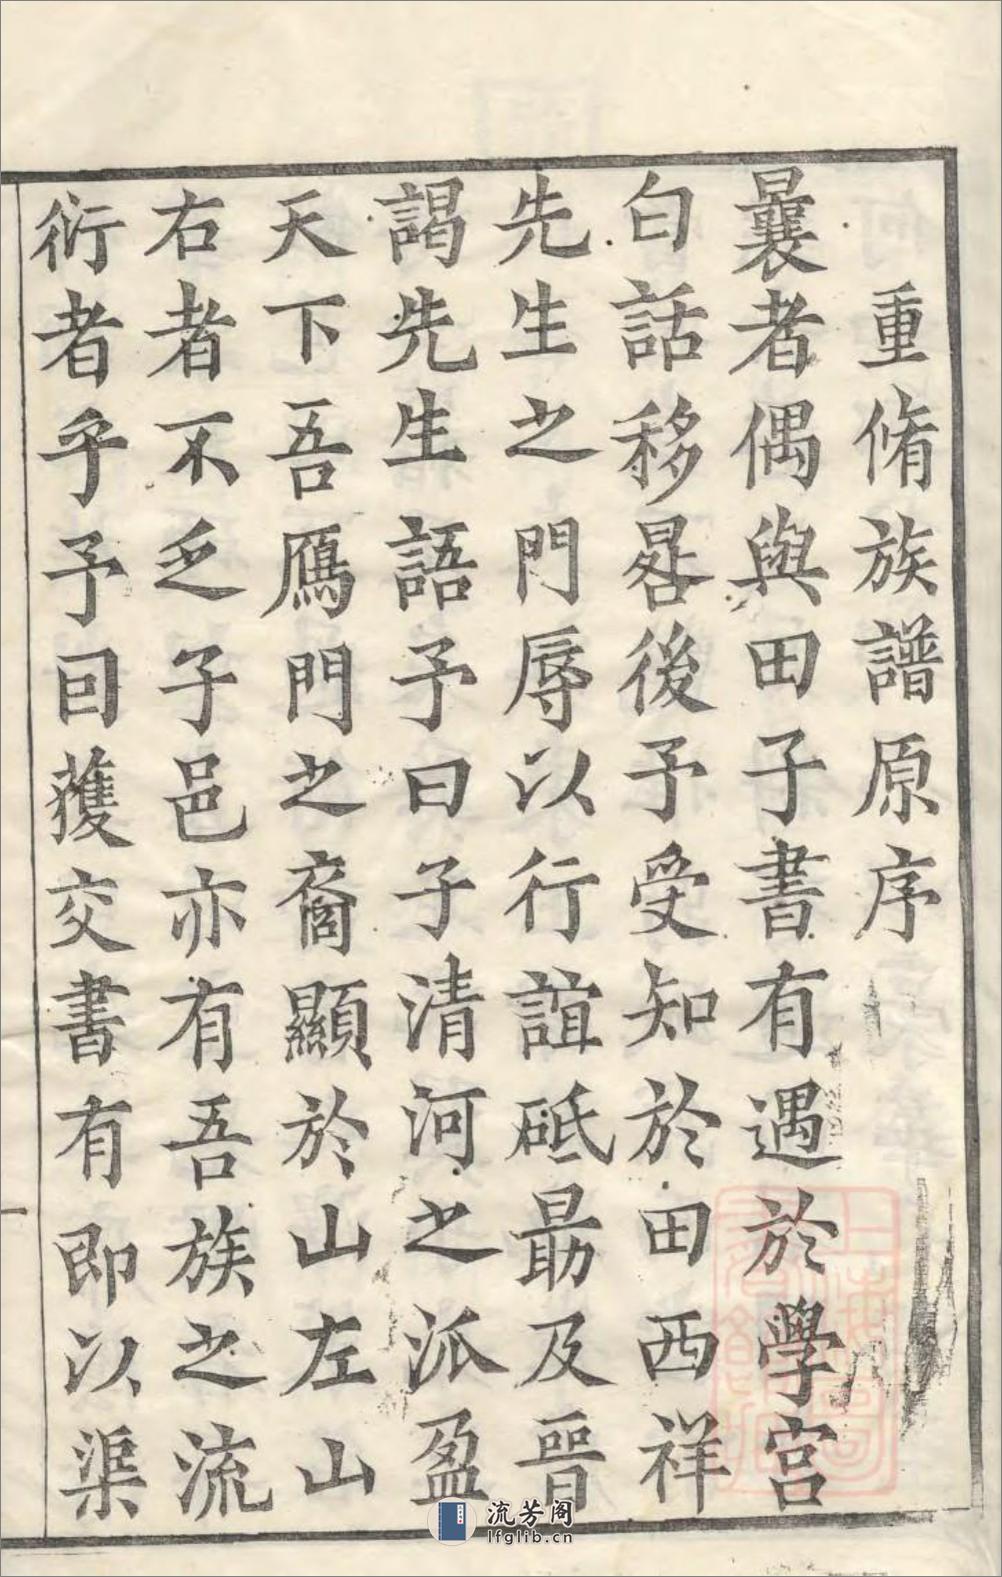 重脩族譜原序
曩者偶與田子書有遇於學宮
白話移晷後予受知於田西祥
先生之門辱以行誼砥勗及晉
謁先生語予曰子清河之派盈
天下吾鴈門之裔顯於山左山
右者不乏子邑亦有吾族之流
衍者乎予曰獲交書有即以渠
一
流芳阁
lfglib.cn